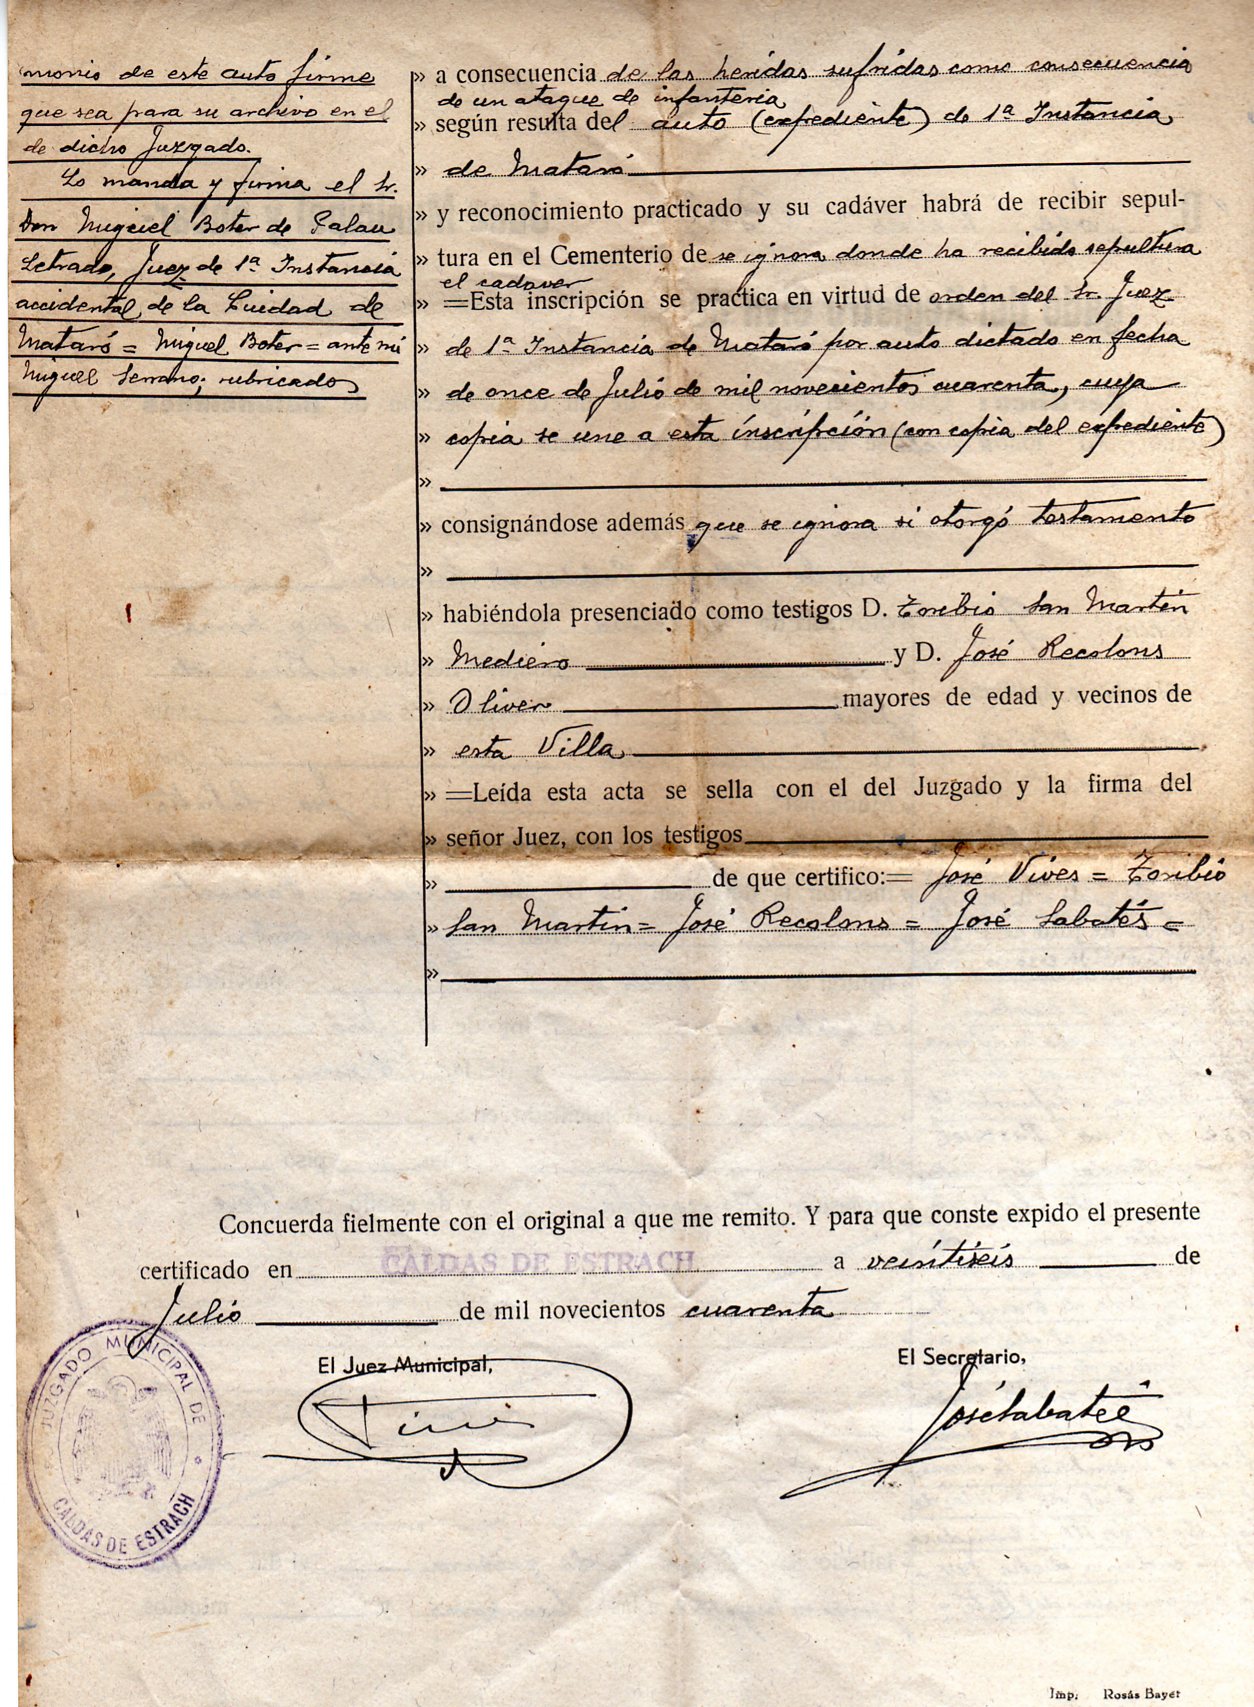 monio de este auto firme
que sea para su archivo en el
de dicho Juzgado.
Lo manda y firma el Sr.
Don Miguel Boter de Palau
Letrado, Juez de 1ª Instancia
accidental, de la Ciudad de
Mataró = Miguel Boter = ante mi
Miguel Serrano; rubricado
» a consecuencia de las heridas sufridas como consecuencia
de un ataque de infanteria
» según resulta del auto (expediente) de 1ª Instancia
» de Mataró
» y reconocimiento practicado y su cadáver habrá de recibir sepul-
» tura en el Cementerio de se ignora donde ha recibido sepultura
el cadaver
» =Esta inscripción se practica en virtud de orden del Sr. Juez
» de 1ª Instancia de Mataró por auto dictado en fecha
» de once de Julio de mil novecientos cuarenta, cuya
» copia se une a esta inscripción (con copia del expediente)
»
» consignándose además que se ignora si otorgó testamento
»
» habiéndola presenciado como testigos D. Toribio San Martín
» Mediero y D. José Recolons
» Oliver mayores de edad y vecinos de
» esta Villa
» =Leída esta acta se sella con el del Juzgado y la firma del
» señor Juez, con los testigos
» de que certifico:= José Vives = Toribio
» San Martin = José Recolons = José Sabatés =
»
Concuerda fielmente con el original a que me remito. Y para que conste expido el presente
certificado en CALDAS DE ESTRACH a veintiseis de
Julio de mil novecientos cuarenta
El Juez Municipal,
El Secretario,
Vives
José Sabatés
JUZGADO MUNICIPAL DE
CALDAS DE ESTRACH
Imp. Rosás Bayer